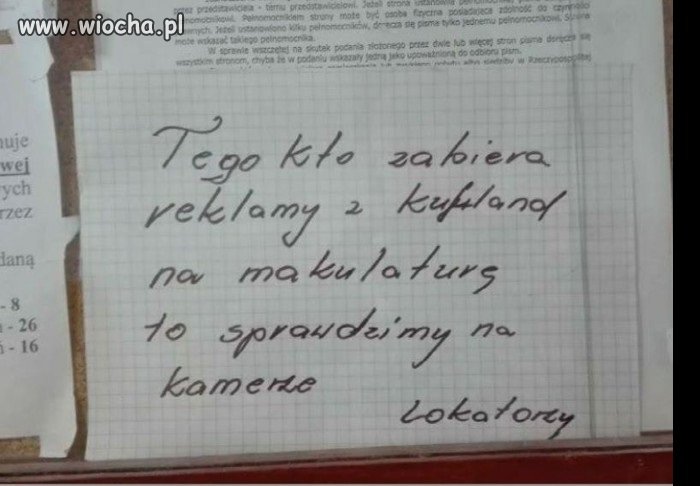 www.wiocha.pl
przez przedstawiciela - temu przedstawicielowi. Jeżeli strona ustanowiła
pełnomocnikowi. Pełnomocnikiem strony może być osoba fizyczna posiadająca zdolność do czynności
prawnych. Jeżeli ustanowiono kilku pełnomocników, doręcza się pisma tylko jednemu pełnomocnikowi. Strona
może wskazać takiego pełnomocnika.
W sprawie wszczętej na skutek podania złożonego przez dwie lub więcej stron pisma doręcza się
wszystkim stronom, chyba że w podaniu wskazały jedną jako upoważnioną do odbioru pism.
nuje
wej
ych
rzez
daną
- 8
- 26
- 16
Tego kto zabiera
reklamy z kufland
na makulaturę
to sprawdzimy na
kamerze
Lokatorzy